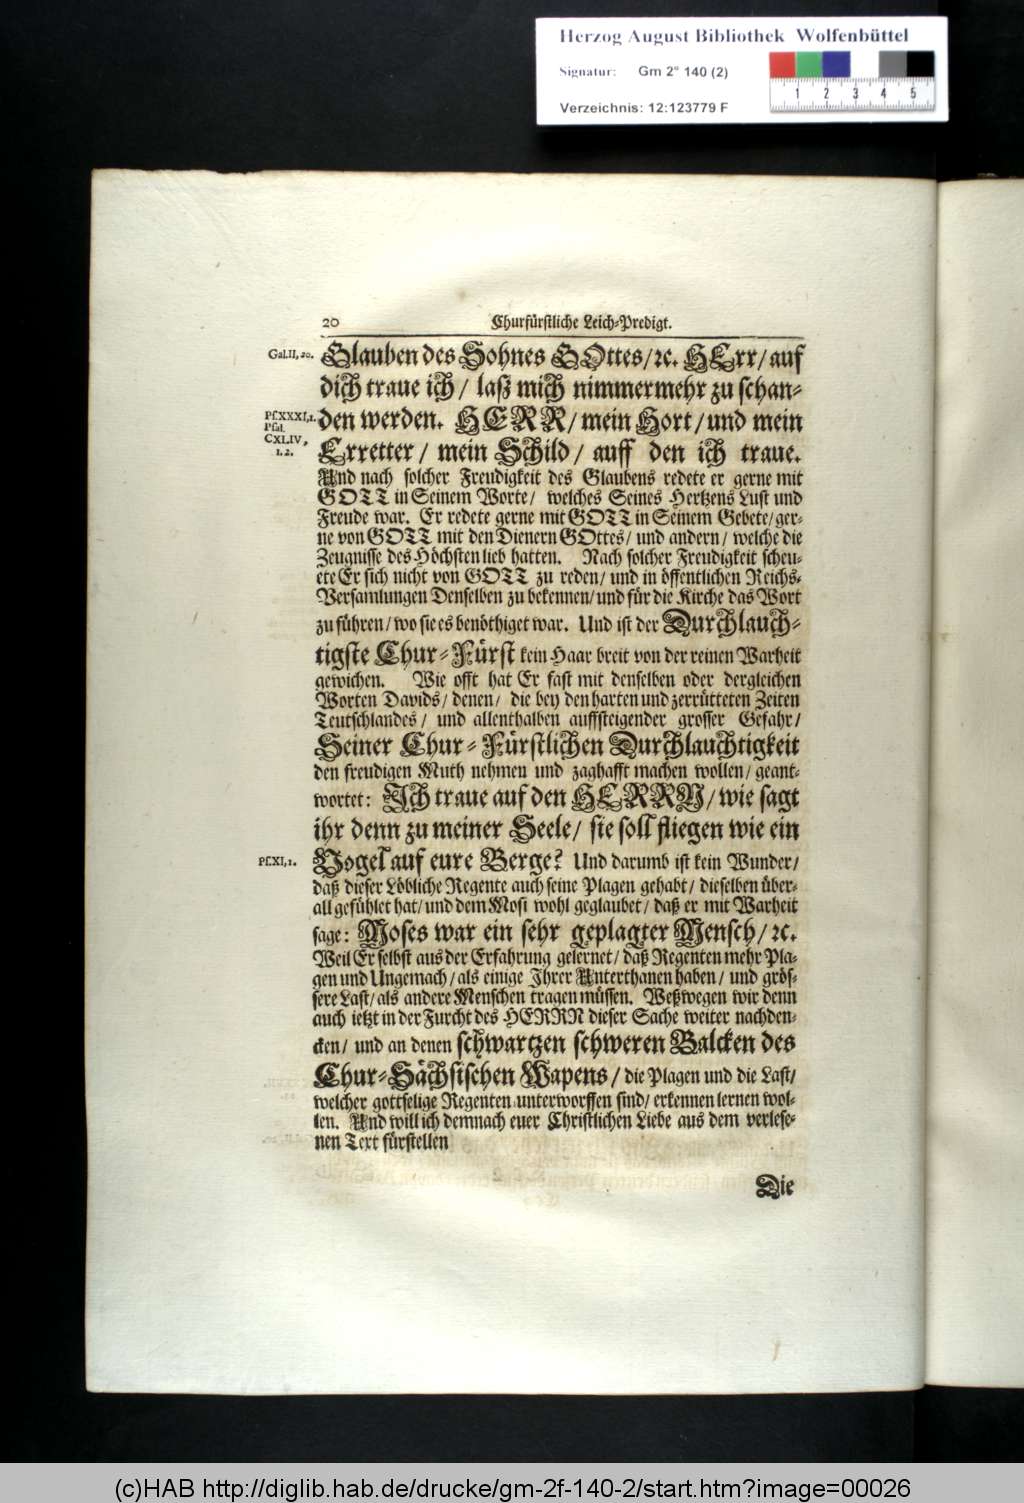 Herzog August Bibliothek Wolfenbüttel
Signatur: Gm 2° 140 (2)
1 2 3 4 5
Verzeichnis: 12:123779 F
20 Churfürstliche Leich-Predigt.
Gal.II, 20. Glauben des Sohnes GOttes/ ꝛc. HErr/ auf
dich traue ich/ laß mich nimmermehr zu schan-
Ps.XXXI,1. den werden. HERR/ mein Hort/ und mein
Psal.
CXLIV, Erretter/ mein Schild/ auff den ich traue.
1.2.
Und nach solcher Freudigkeit des Glaubens redete er gerne mit
GOTT in Seinem Worte/ welches Seines Hertzens Lust und
Freude war. Er redete gerne mit GOTT in Seinem Gebete/ ger-
ne von GOTT mit den Dienern GOttes/ und andern/ welche die
Zeugnisse des Höchsten lieb hatten. Nach solcher Freudigkeit scheu-
ete Er sich nicht von GOTT zu reden/ und in öffentlichen Reichs-
Versamlungen Denselben zu bekennen/ und für die Kirche das Wort
zu führen/ wo sie es benöthiget war. Und ist der Durchlauch-
tigste Chur-Fürst kein Haar breit von der reinen Warheit
gewichen. Wie offt hat Er fast mit denselben oder dergleichen
Worten Davids/ denen/ die bey den harten und zerrütteten Zeiten
Teutschlandes/ und allenthalben auffsteigender grosser Gefahr/
Seiner Chur-Fürstlichen Durchlauchtigkeit
den freudigen Muth nehmen und zaghafft machen wollen/ geant-
wortet: Ich traue auf den HERRN/ wie sagt
ihr denn zu meiner Seele/ sie soll fliegen wie ein
Ps.XI,1. Vogel auf eure Berge? Und darumb ist kein Wunder/
daß dieser Löbliche Regente auch seine Plagen gehabt/ dieselben über-
all gefühlet hat/ und dem Mosi wohl geglaubet/ daß er mit Warheit
sage: Moses war ein sehr geplagter Mensch/ ꝛc.
Weil Er selbst aus der Erfahrung gelernet/ daß Regenten mehr Pla-
gen und Ungemach/ als einige Ihrer Unterthanen haben/ und grös-
sere Last/ als andere Menschen tragen müssen. Weßwegen wir denn
auch ietzt in der Furcht des HERRN dieser Sache weiter nachden-
cken/ und an denen schwartzen schweren Balcken des
Chur-Sächsischen Wapens/ die Plagen und die Last/
welcher gottselige Regenten unterworffen sind/ erkennen lernen wol-
len. Und will ich demnach euer Christlichen Liebe aus dem verlese-
nen Text fürstellen
Die
(c)HAB http://diglib.hab.de/drucke/gm-2f-140-2/start.htm?image=00026